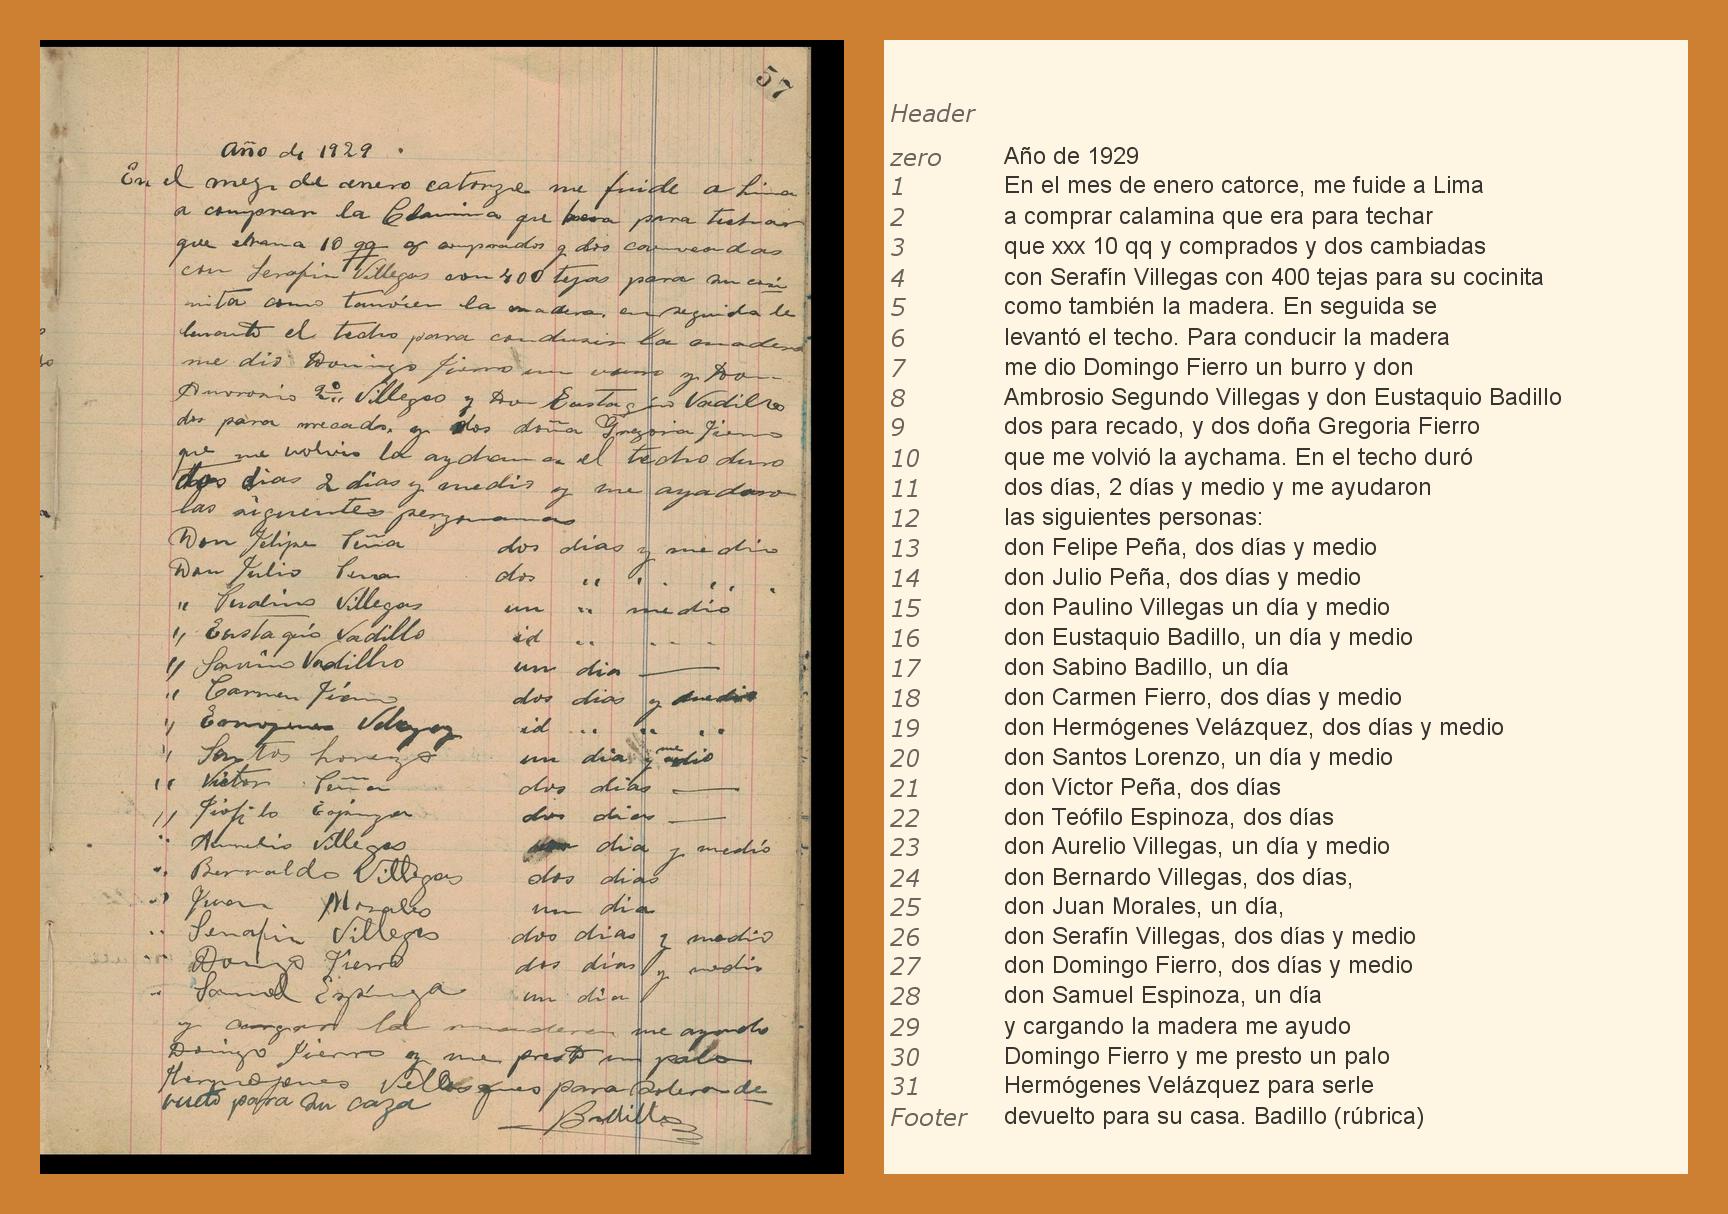 57
Año de 1929
En el mez de enero catorze me fuide a Lima
a comprar la Calamina que hera para techar
que 10 qq y comprados y dos
con Serafin Villegas con 400 tejas para su coci
nita como tanvien la madera, en seguida le
levanto el techo para condusir la madera
me dió Domingo Fierro un vurro y Don
Amvrosio 2º Villegas y Don Eustaqio Vadillo
dos para recado, y dos doña Gregoria Fierro
que me volvio la aychama en el techo duro
dos dias 2 dias y medio y me ayudaron
las siguientes perzonas
Don Felipe Peña dos dias y medio
Don Julio Pena dos " " " "
" Paulino Villegas un " medió
" Eustaqio Vadillo id " " "
" Savino Vadillo un dia —
" Carmen Fierro dos dias y medio
" Ermogenes Velazqez id " " "
" Santos Lorenzo un dia y medio
" Victor Peña dos dias —
" Tiofilo Espinoza dos dias —
" Aurelio Villegas un dia y medió
" Bernaldo Villegas dos dias
" Juan Morales un dia
" Serafin Villegas dos dias y medio
" Domingo Fierro dos dias y medio
" Samuel Espinoza un dia
y cargar la madera me ayudo
Domingo Fierro y me prestó un palo
Hermojenes para de
vuelto para su caza
Badillo
Header
zero Año de 1929
1 En el mes de enero catorce, me fuide a Lima
2 a comprar calamina que era para techar
3 que xxx 10 qq y comprados y dos cambiadas
4 con Serafín Villegas con 400 tejas para su cocinita
5 como también la madera. En seguida se
6 levantó el techo. Para conducir la madera
7 me dio Domingo Fierro un burro y don
8 Ambrosio Segundo Villegas y don Eustaquio Badillo
9 dos para recado, y dos doña Gregoria Fierro
10 que me volvió la aychama. En el techo duró
11 dos días, 2 días y medio y me ayudaron
12 las siguientes personas:
13 don Felipe Peña, dos días y medio
14 don Julio Peña, dos días y medio
15 don Paulino Villegas un día y medio
16 don Eustaquio Badillo, un día y medio
17 don Sabino Badillo, un día
18 don Carmen Fierro, dos días y medio
19 don Hermógenes Velázquez, dos días y medio
20 don Santos Lorenzo, un día y medio
21 don Víctor Peña, dos días
22 don Teófilo Espinoza, dos días
23 don Aurelio Villegas, un día y medio
24 don Bernardo Villegas, dos días,
25 don Juan Morales, un día,
26 don Serafín Villegas, dos días y medio
27 don Domingo Fierro, dos días y medio
28 don Samuel Espinoza, un día
29 y cargando la madera me ayudo
30 Domingo Fierro y me presto un palo
31 Hermógenes Velázquez para serle
Footer devuelto para su casa. Badillo (rúbrica)